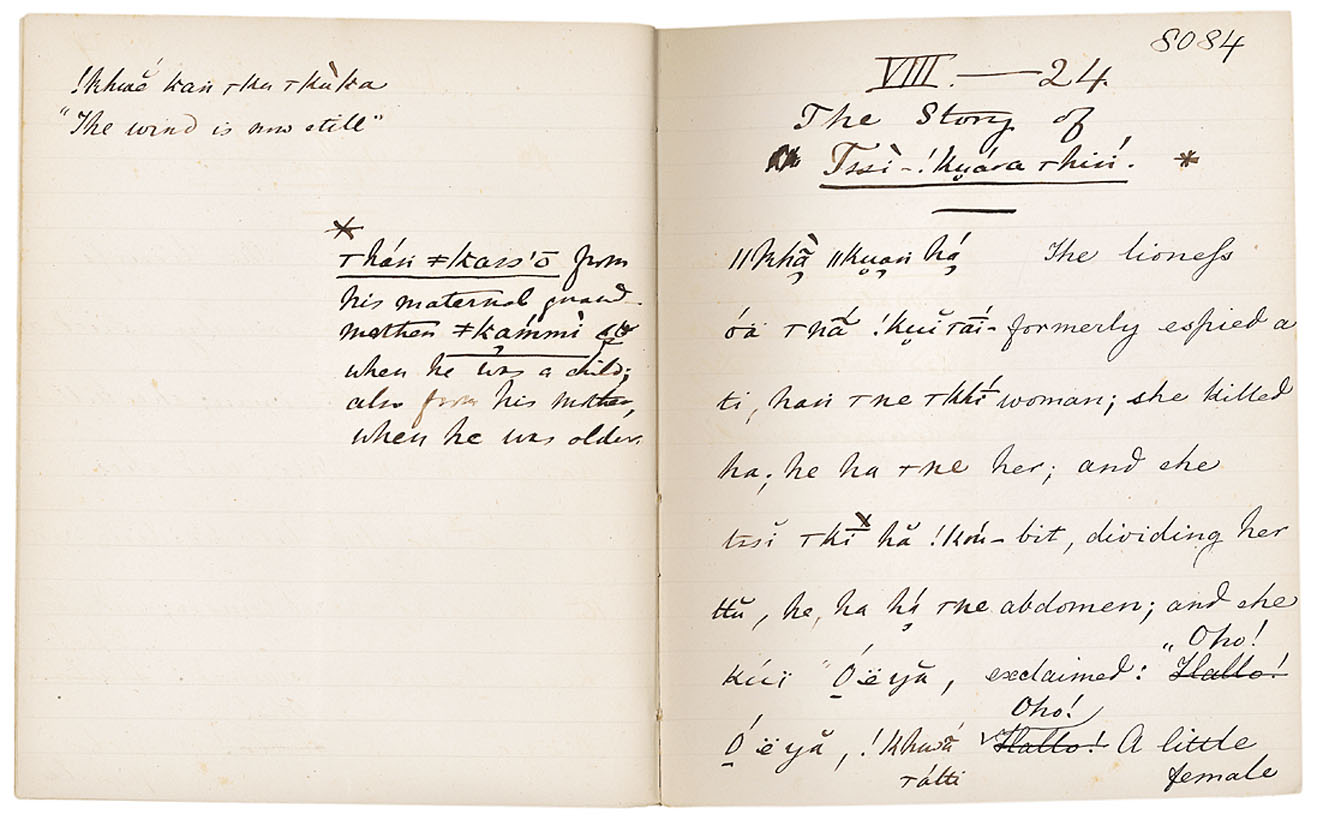 !khwé̆ kan ꞇku ꞇkùka
"The wind is now still"
*
ꞇhán ǂkass'ō from
his maternal grand-
mother ǂkạ́mmì
when he was a child;
also from his mother,
when he was older.
8084
VIII. — 24.
The Story of
Tssì-!kụára ꞇhiń. *
ǁkhạ̄̀ ǁkụạn hạ́ The lioness
óä ꞇnā́ !kụĭ ꞇāí- formerly espied a
ti, han ꞇne ꞇkhī́ woman; she killed
ha; he ha ꞇne her; and she
tssĭ ꞇkī x hă !kóu- bit, dividing her
ttŭ, he, ha hạ́ ꞇne abdomen; and she
kúï "Ó̱ëyă, exclaimed: "Oho! Hallo!
Ó̱ëyă, !khwā́ Oho! Hallo! A little
ꞇátti female